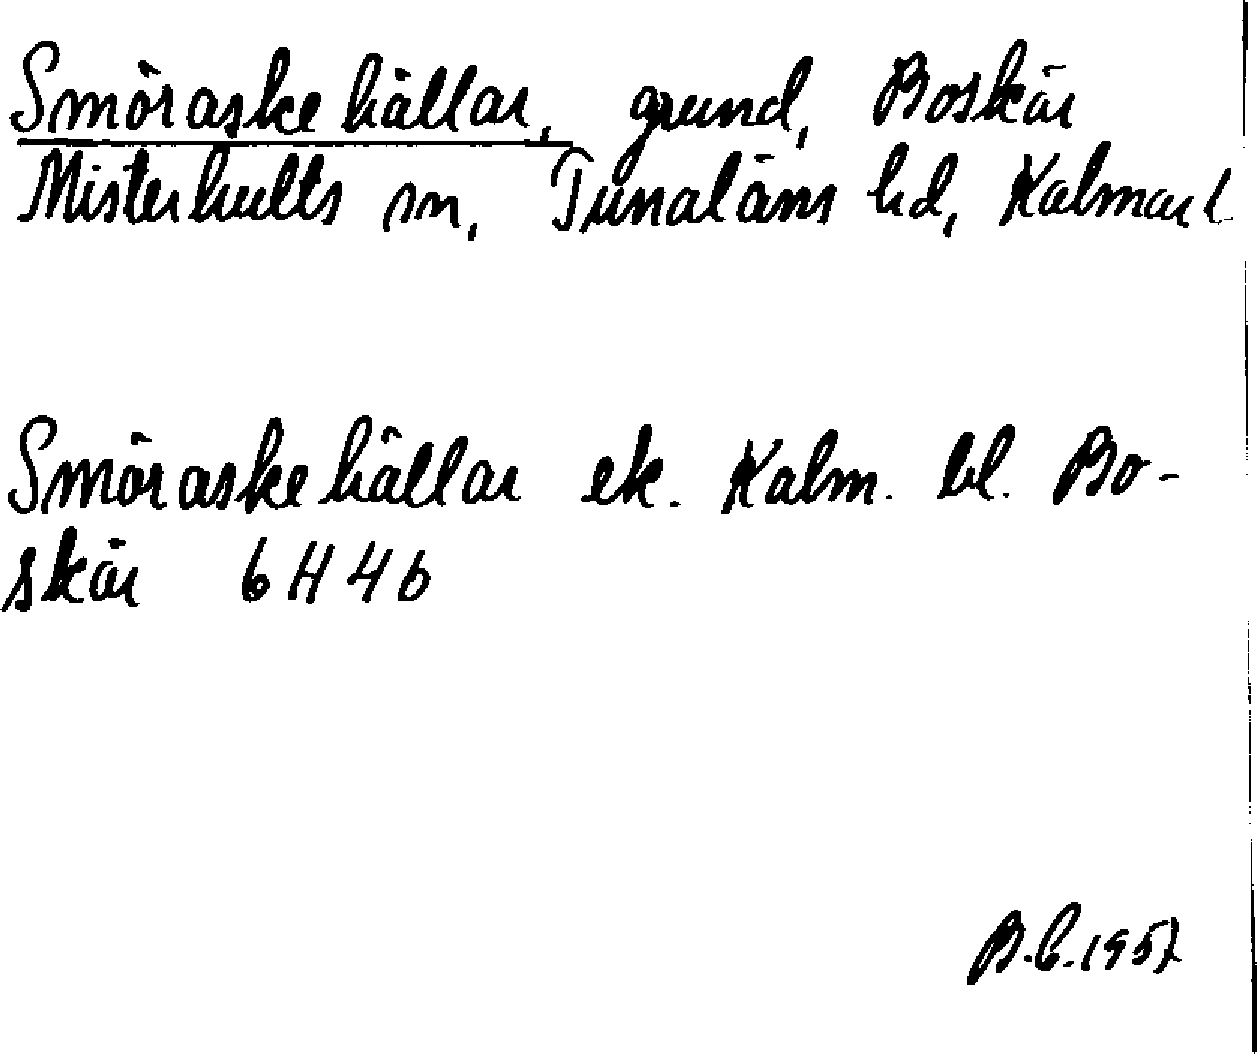 Smöraskehällar, grund, Boskär
Misterhults sn, Tunaläns hd, Kalmar l
Smöraskehällar ek. Kalm. bl. Bo-
skär 6H4b
B.C. 1957